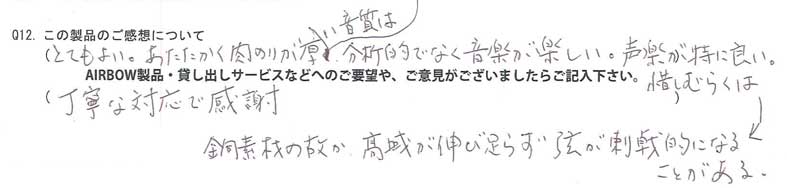 Q12. この製品のご感想について
(とてもよい。あたたかく肉のりが厚い音質は分析的でなく音楽が楽しい。声楽が特に良い。
惜しむらくは
AIRBOW製品・貸し出しサービスなどへのご要望や、ご意見がございましたらご記入下さい。
(丁寧な対応で感謝
銅素材の故か、高域が伸び足らず弦が刺戟的になる
ことがある。